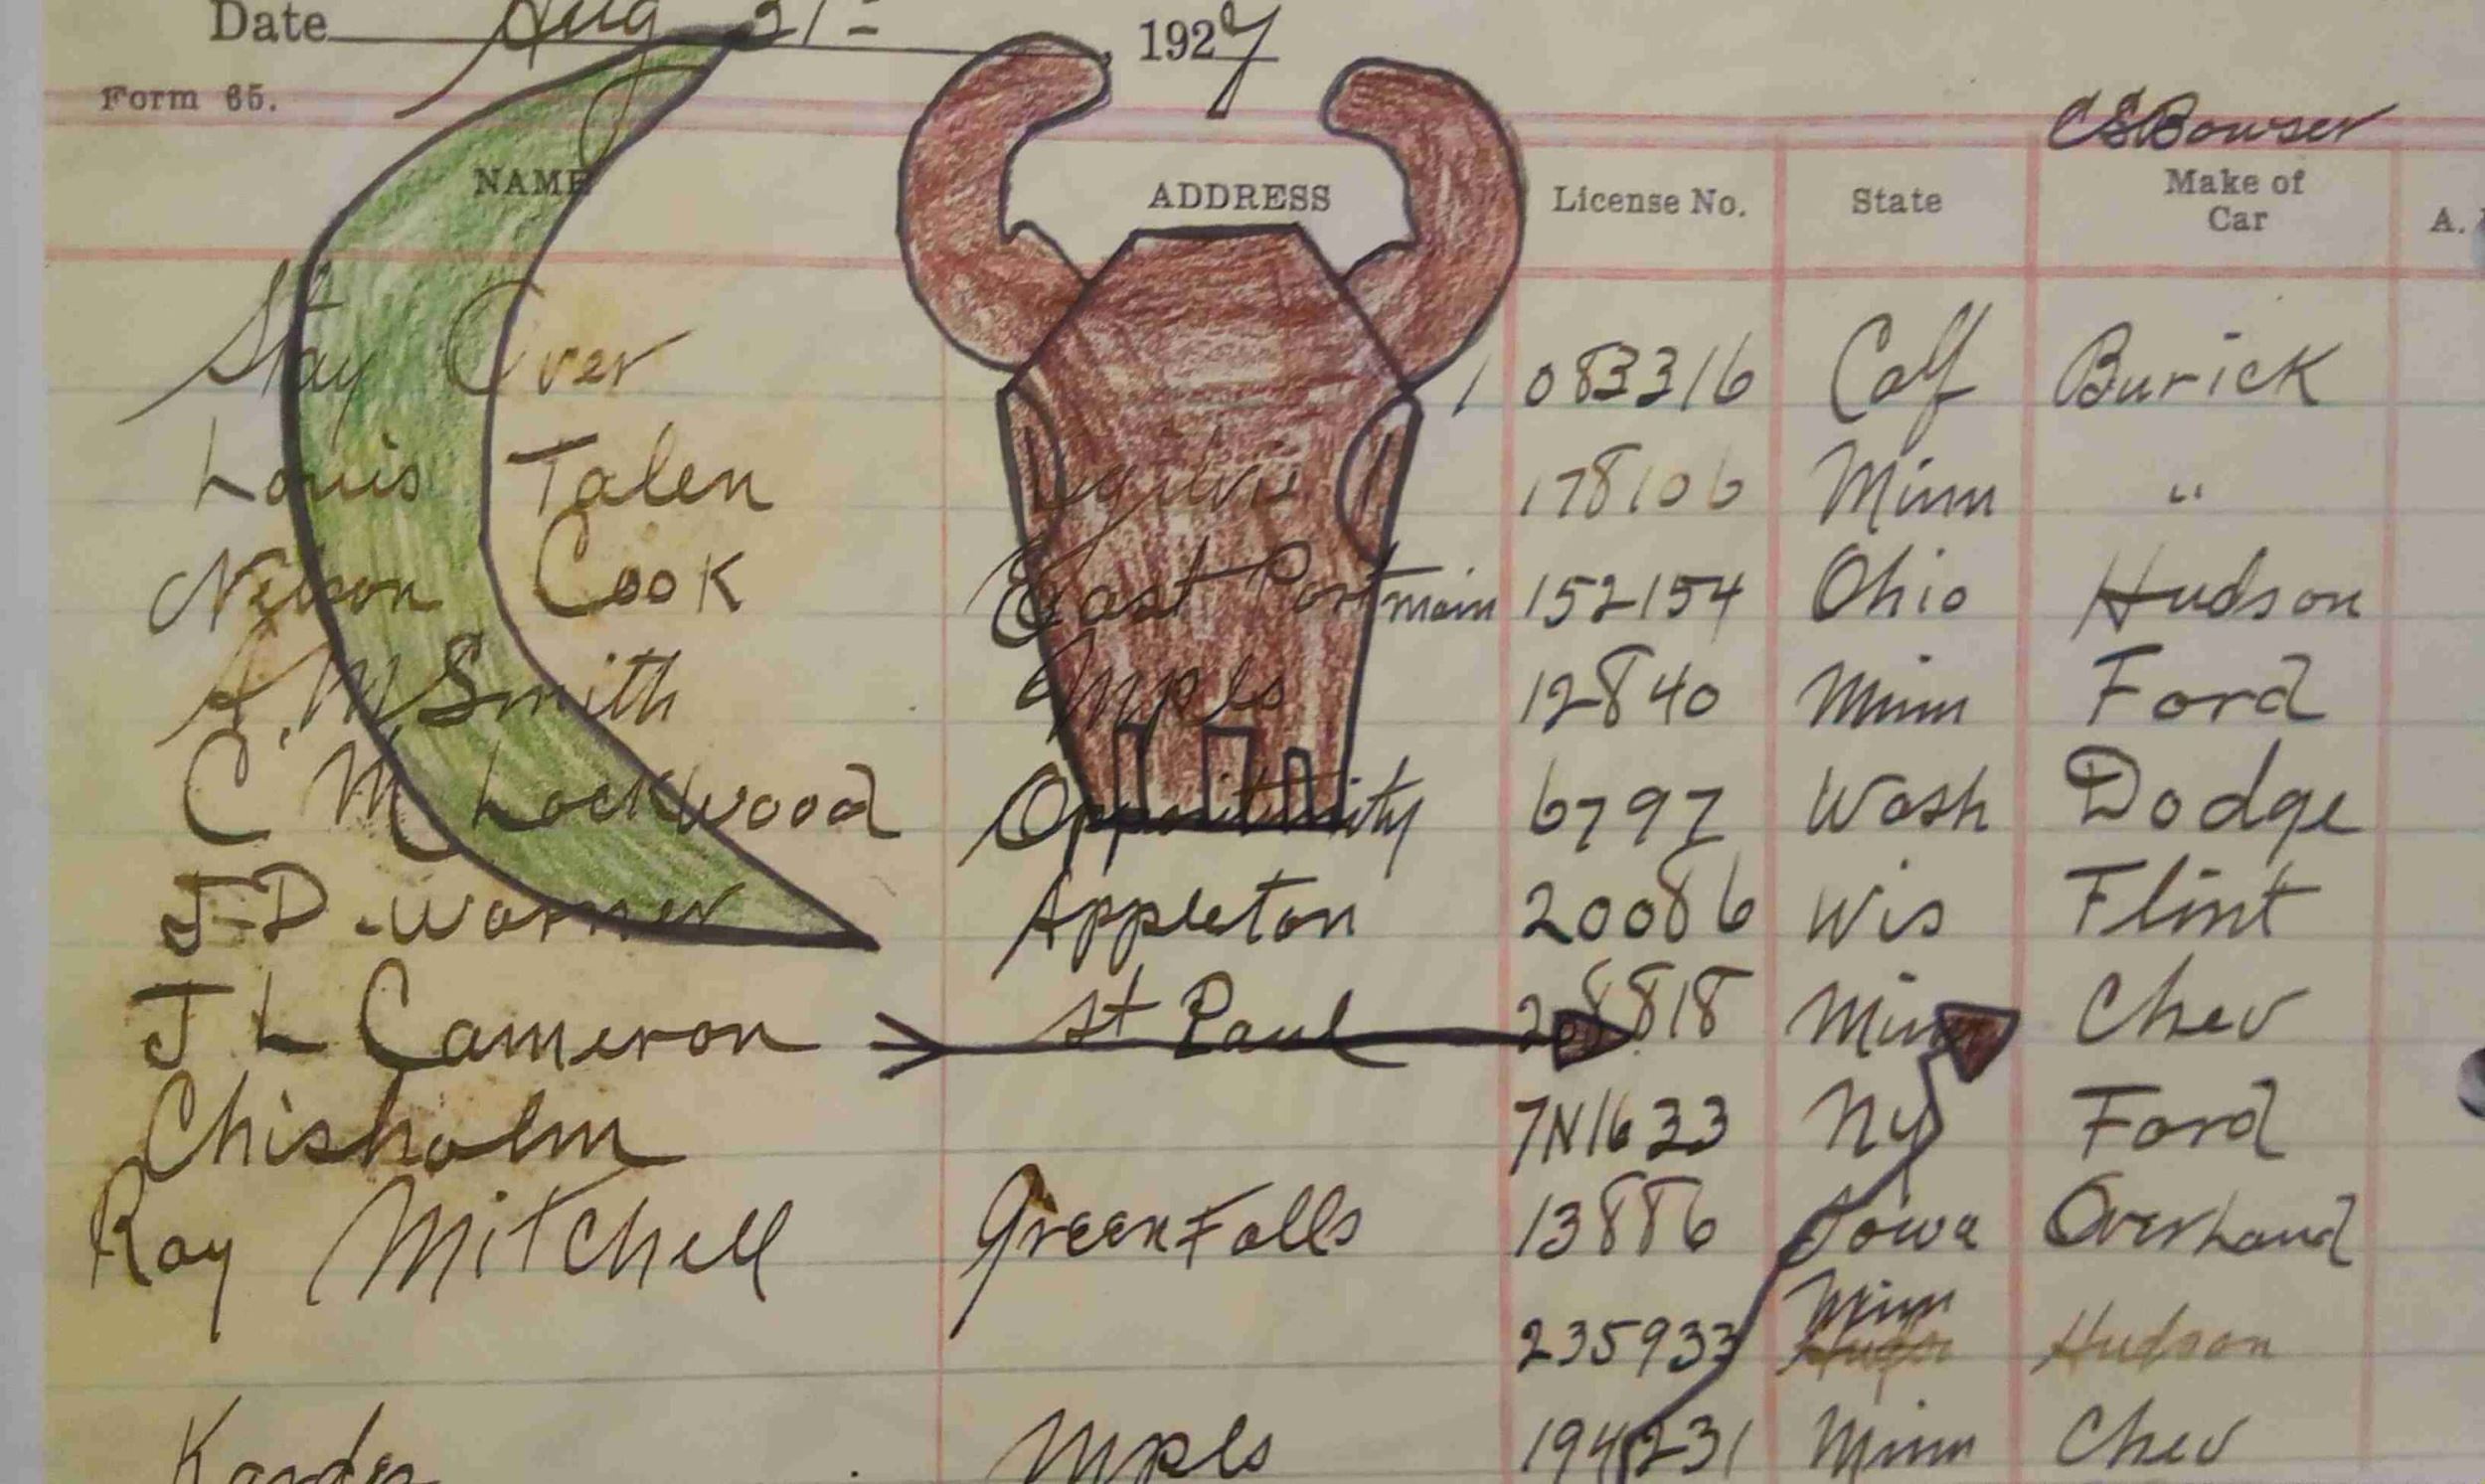 Date Aug 21 =, 1927
Form 65.
CSBowser
NAME ADDRESS License No. State Make of Car A.
Stay Over 1083316 Calf Burick
Louis Talen Ogilvie 178106 Minn "
Nelson Cook East Portmain 152154 Ohio Hudson
A. M Smith Mpls 12840 Minn Ford
C M Lockwood Opportunity 6797 Wash Dodge
J-D-Warner Appleton 20086 Wis Flint
J L Cameron St Paul 208818 Minn Chev
Chisholm 7N1633 Ny Ford
Ray Mitchell Green Falls 13886 Iowa Overland
Minn
235933 Hudson
Mpls 194231 Minn Chev